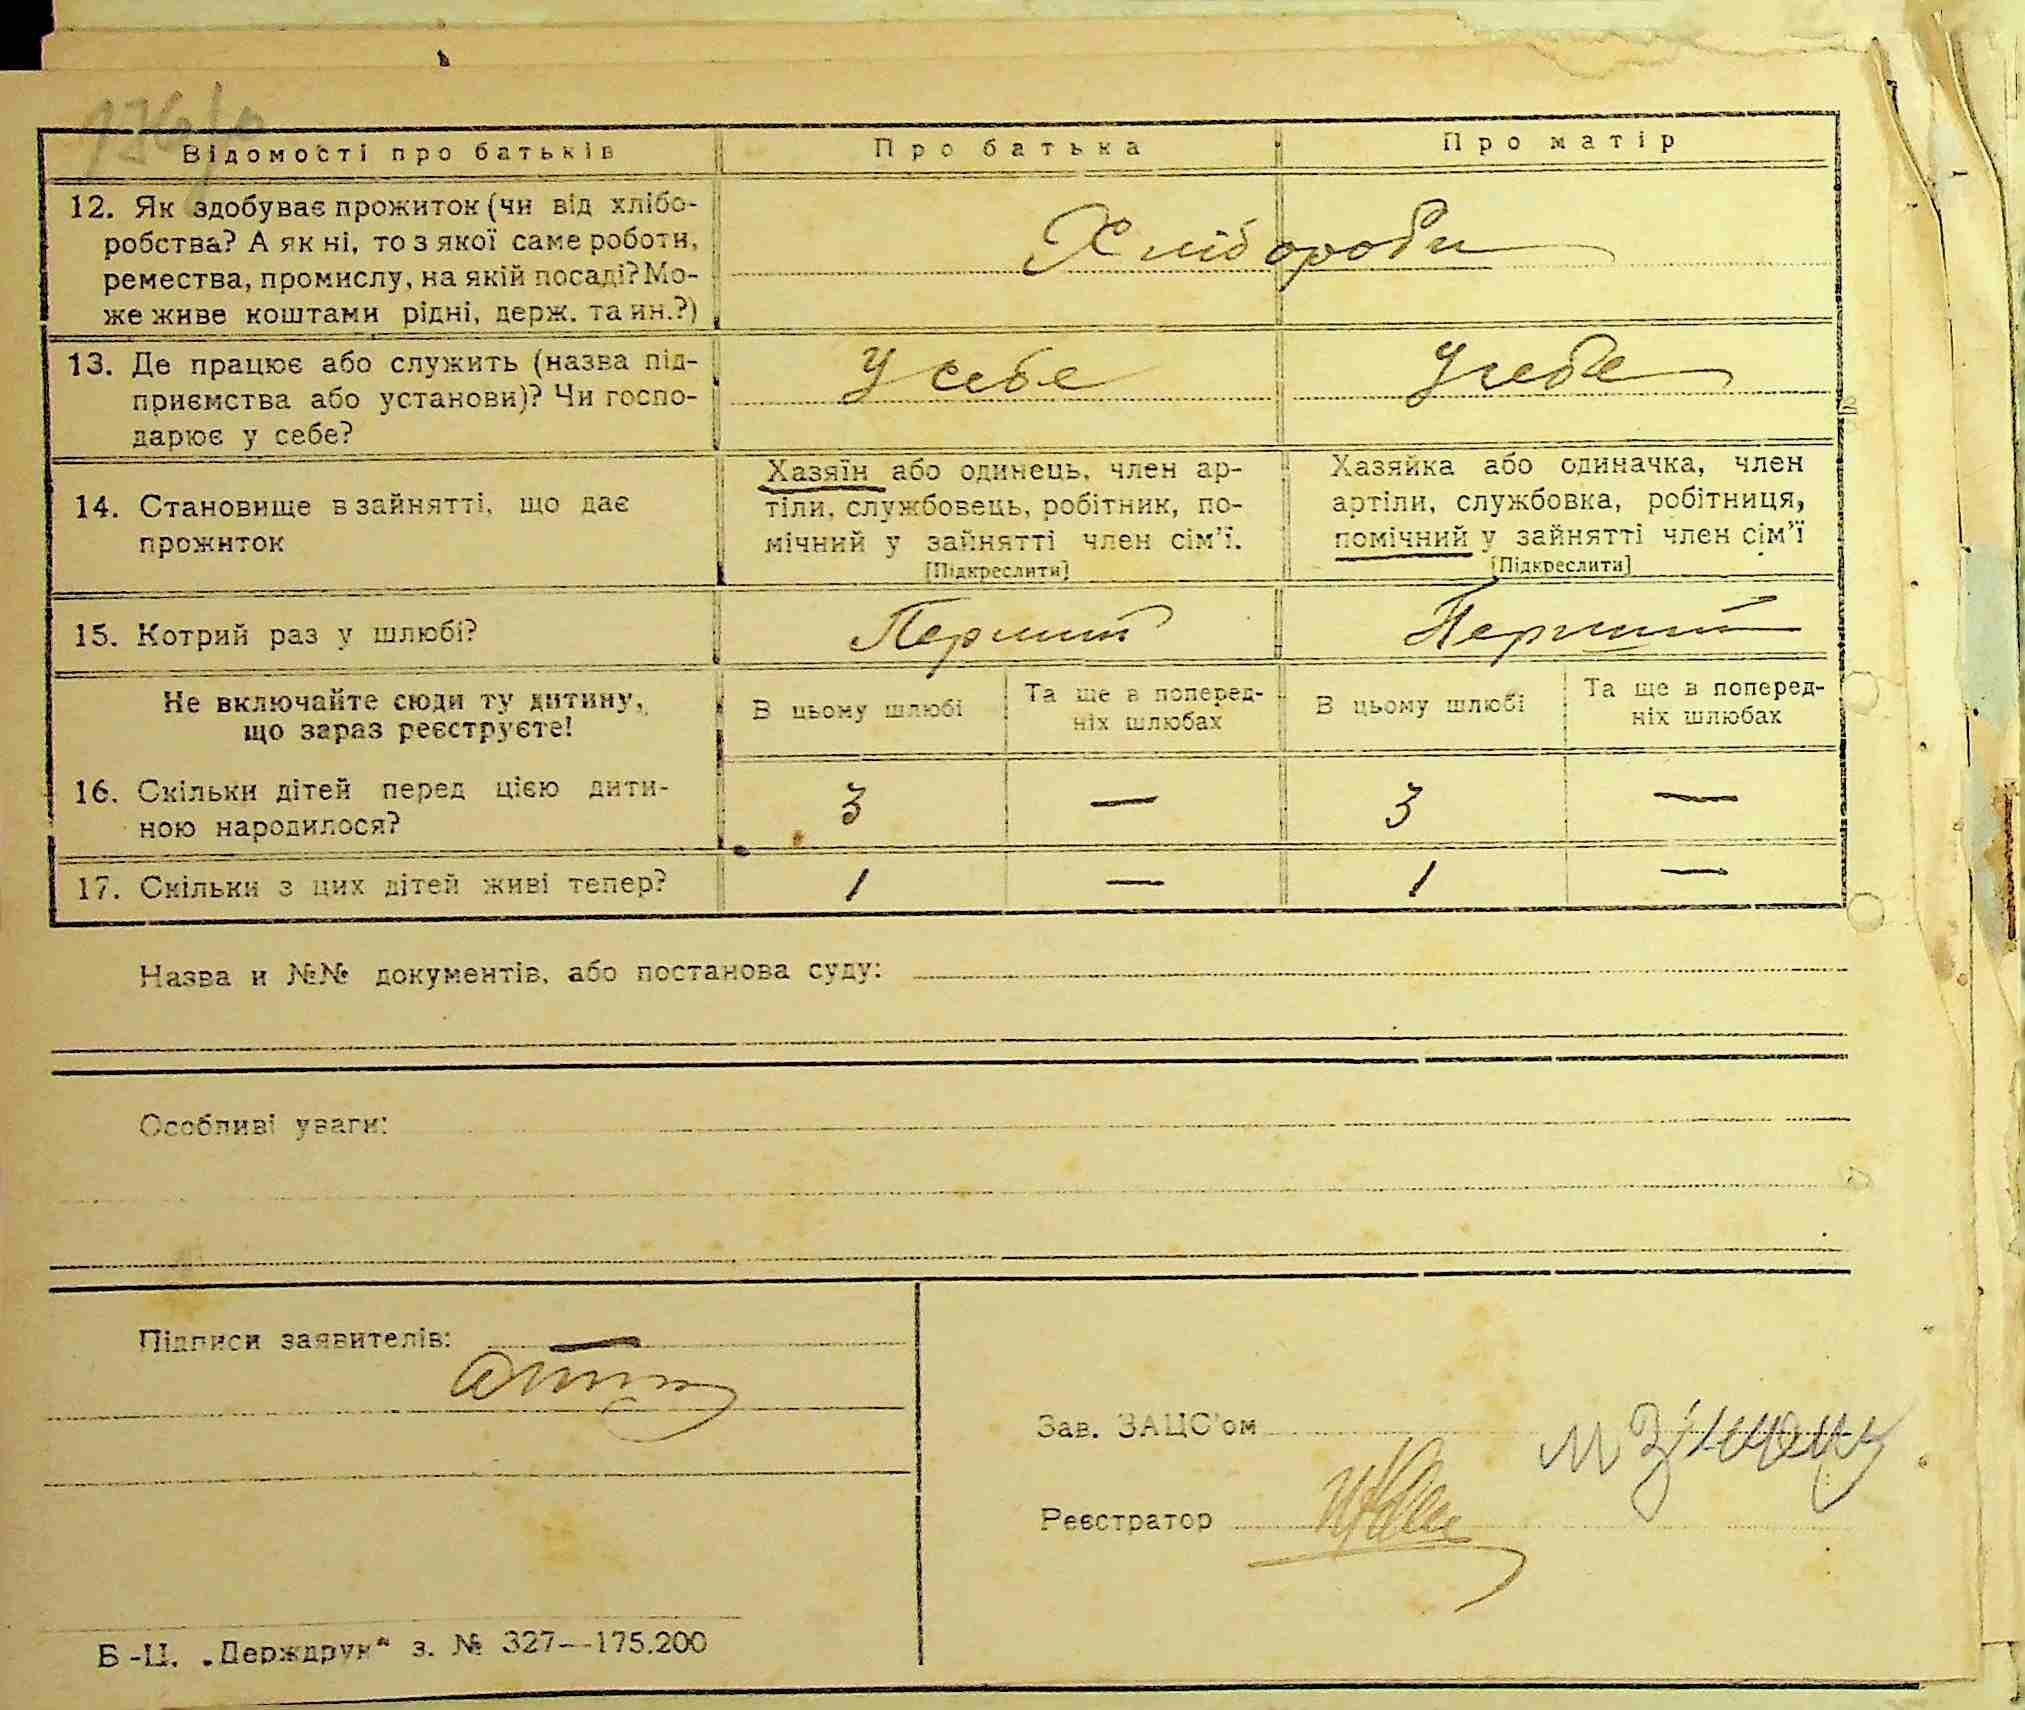 Відомості про батьків Про батька Про матір
12. Як здобуває прожиток (чи від хлібо-
робства? А як ні, то з якої саме роботи,
ремества, промислу, на якій посаді? Мо-
же живе коштами рідні, держ. та ин.?)
Хлібороби
13. Де працює або служить (назва під-
приємства або установи)? Чи госпо-
дарює у себе?
У себе У себе
14. Становище в зайнятті, що дає
прожиток
Хазяїн або одинець, член ар-
тіли, службовець, робітник, по-
мічний у зайнятті член сім'ї.
[Підкреслити]
Хазяйка або одиначка, член
артіли, службовка, робітниця,
помічний у зайнятті член сім'ї
[Підкреслити]
15. Котрий раз у шлюбі? Перший Перший
Не включайте сюди ту дитину,
що зараз реєструєте!
В цьому шлюбі
Та ще в поперед-
ніх шлюбах
В цьому шлюбі
Та ще в поперед-
ніх шлюбах
16. Скільки дітей перед цією дити-
ною народилося?
3 — 3 —
17. Скільки з цих дітей живі тепер? 1 — 1 —
Назва и №№ документів, або постанова суду:
Особливі уваги:
Підписи заявителів: —
Зав. ЗАЦС'ом
Реєстратор
Б-Ц. „Держдрук" з. № 327—175.200